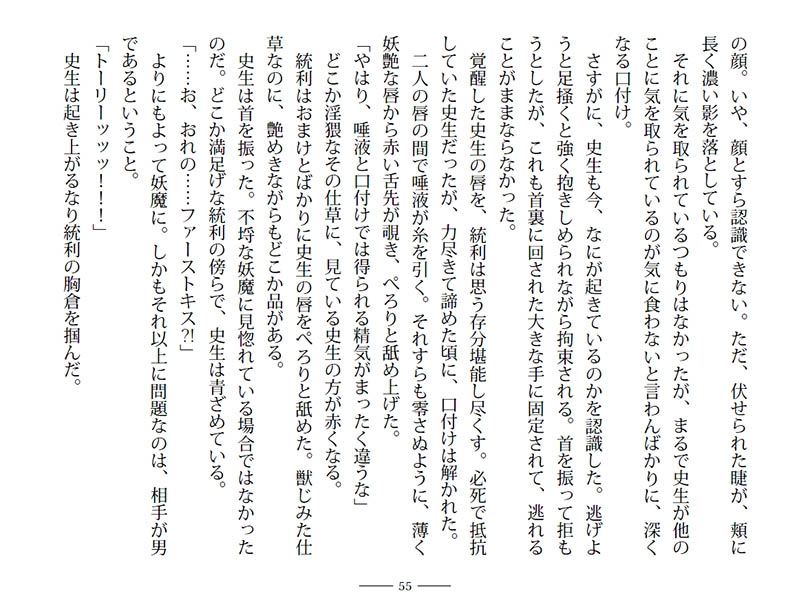 の顔。いや、顔とすら認識できない。ただ、伏せられた睫が、頬に
長く濃い影を落としている。
それに気を取られているつもりはなかったが、まるで史生が他の
ことに気を取られているのが気に食わないと言わんばかりに、深く
なる口付け。
さすがに、史生も今、なにが起きているのかを認識した。逃げよ
うと足掻くと強く抱きしめられながら拘束される。首を振って拒も
うとしたが、これも首裏に回された大きな手に固定されて、逃れる
ことがままならなかった。
覚醒した史生の唇を、統利は思う存分堪能し尽くす。必死で抵抗
していた史生だったが、力尽きて諦めた頃に、口付けは解かれた。
二人の唇の間で唾液が糸を引く。それすらも零さぬように、薄く
妖艶な唇から赤い舌先が覗き、ぺろりと舐め上げた。
「やはり、唾液と口付けでは得られる精気がまったく違うな」
どこか淫猥なその仕草に、見ている史生の方が赤くなる。
統利はおまけとばかりに史生の唇をぺろりと舐めた。獣じみた仕
草なのに、艶めきながらもどこか品がある。
史生は首を振った。不埒な妖魔に見惚れている場合ではなかった
のだ。どこか満足げな統利の傍らで、史生は青ざめている。
「……お、おれの……ファーストキス?!」
よりにもよって妖魔に。しかもそれ以上に問題なのは、相手が男
であるということ。
「トーリーッッッ！！！」
史生は起き上がるなり統利の胸倉を掴んだ。
55